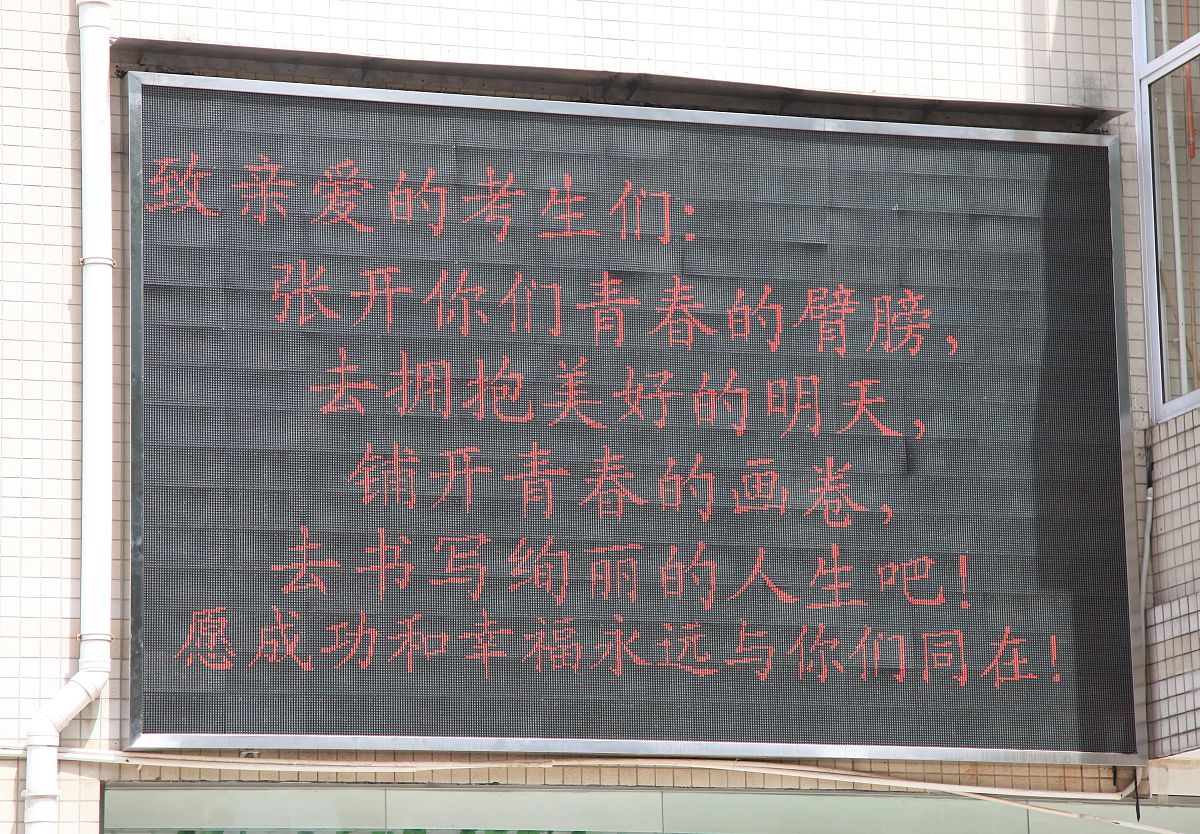 致亲爱的考生们:
张开你们青春的臂膀,
去拥抱美好的明天,
铺开青春的画卷,
去书写绚丽的人生吧!
愿成功和幸福永远与你们同在!